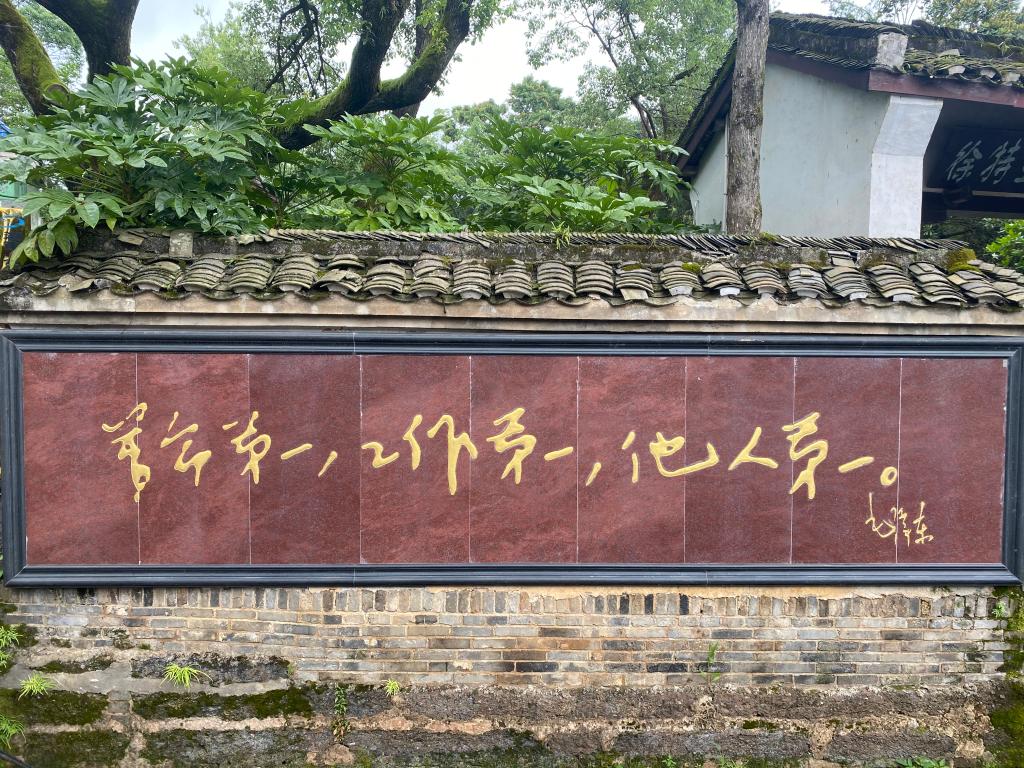 徐特
革命第一，工作第一，他人第一。
毛泽东